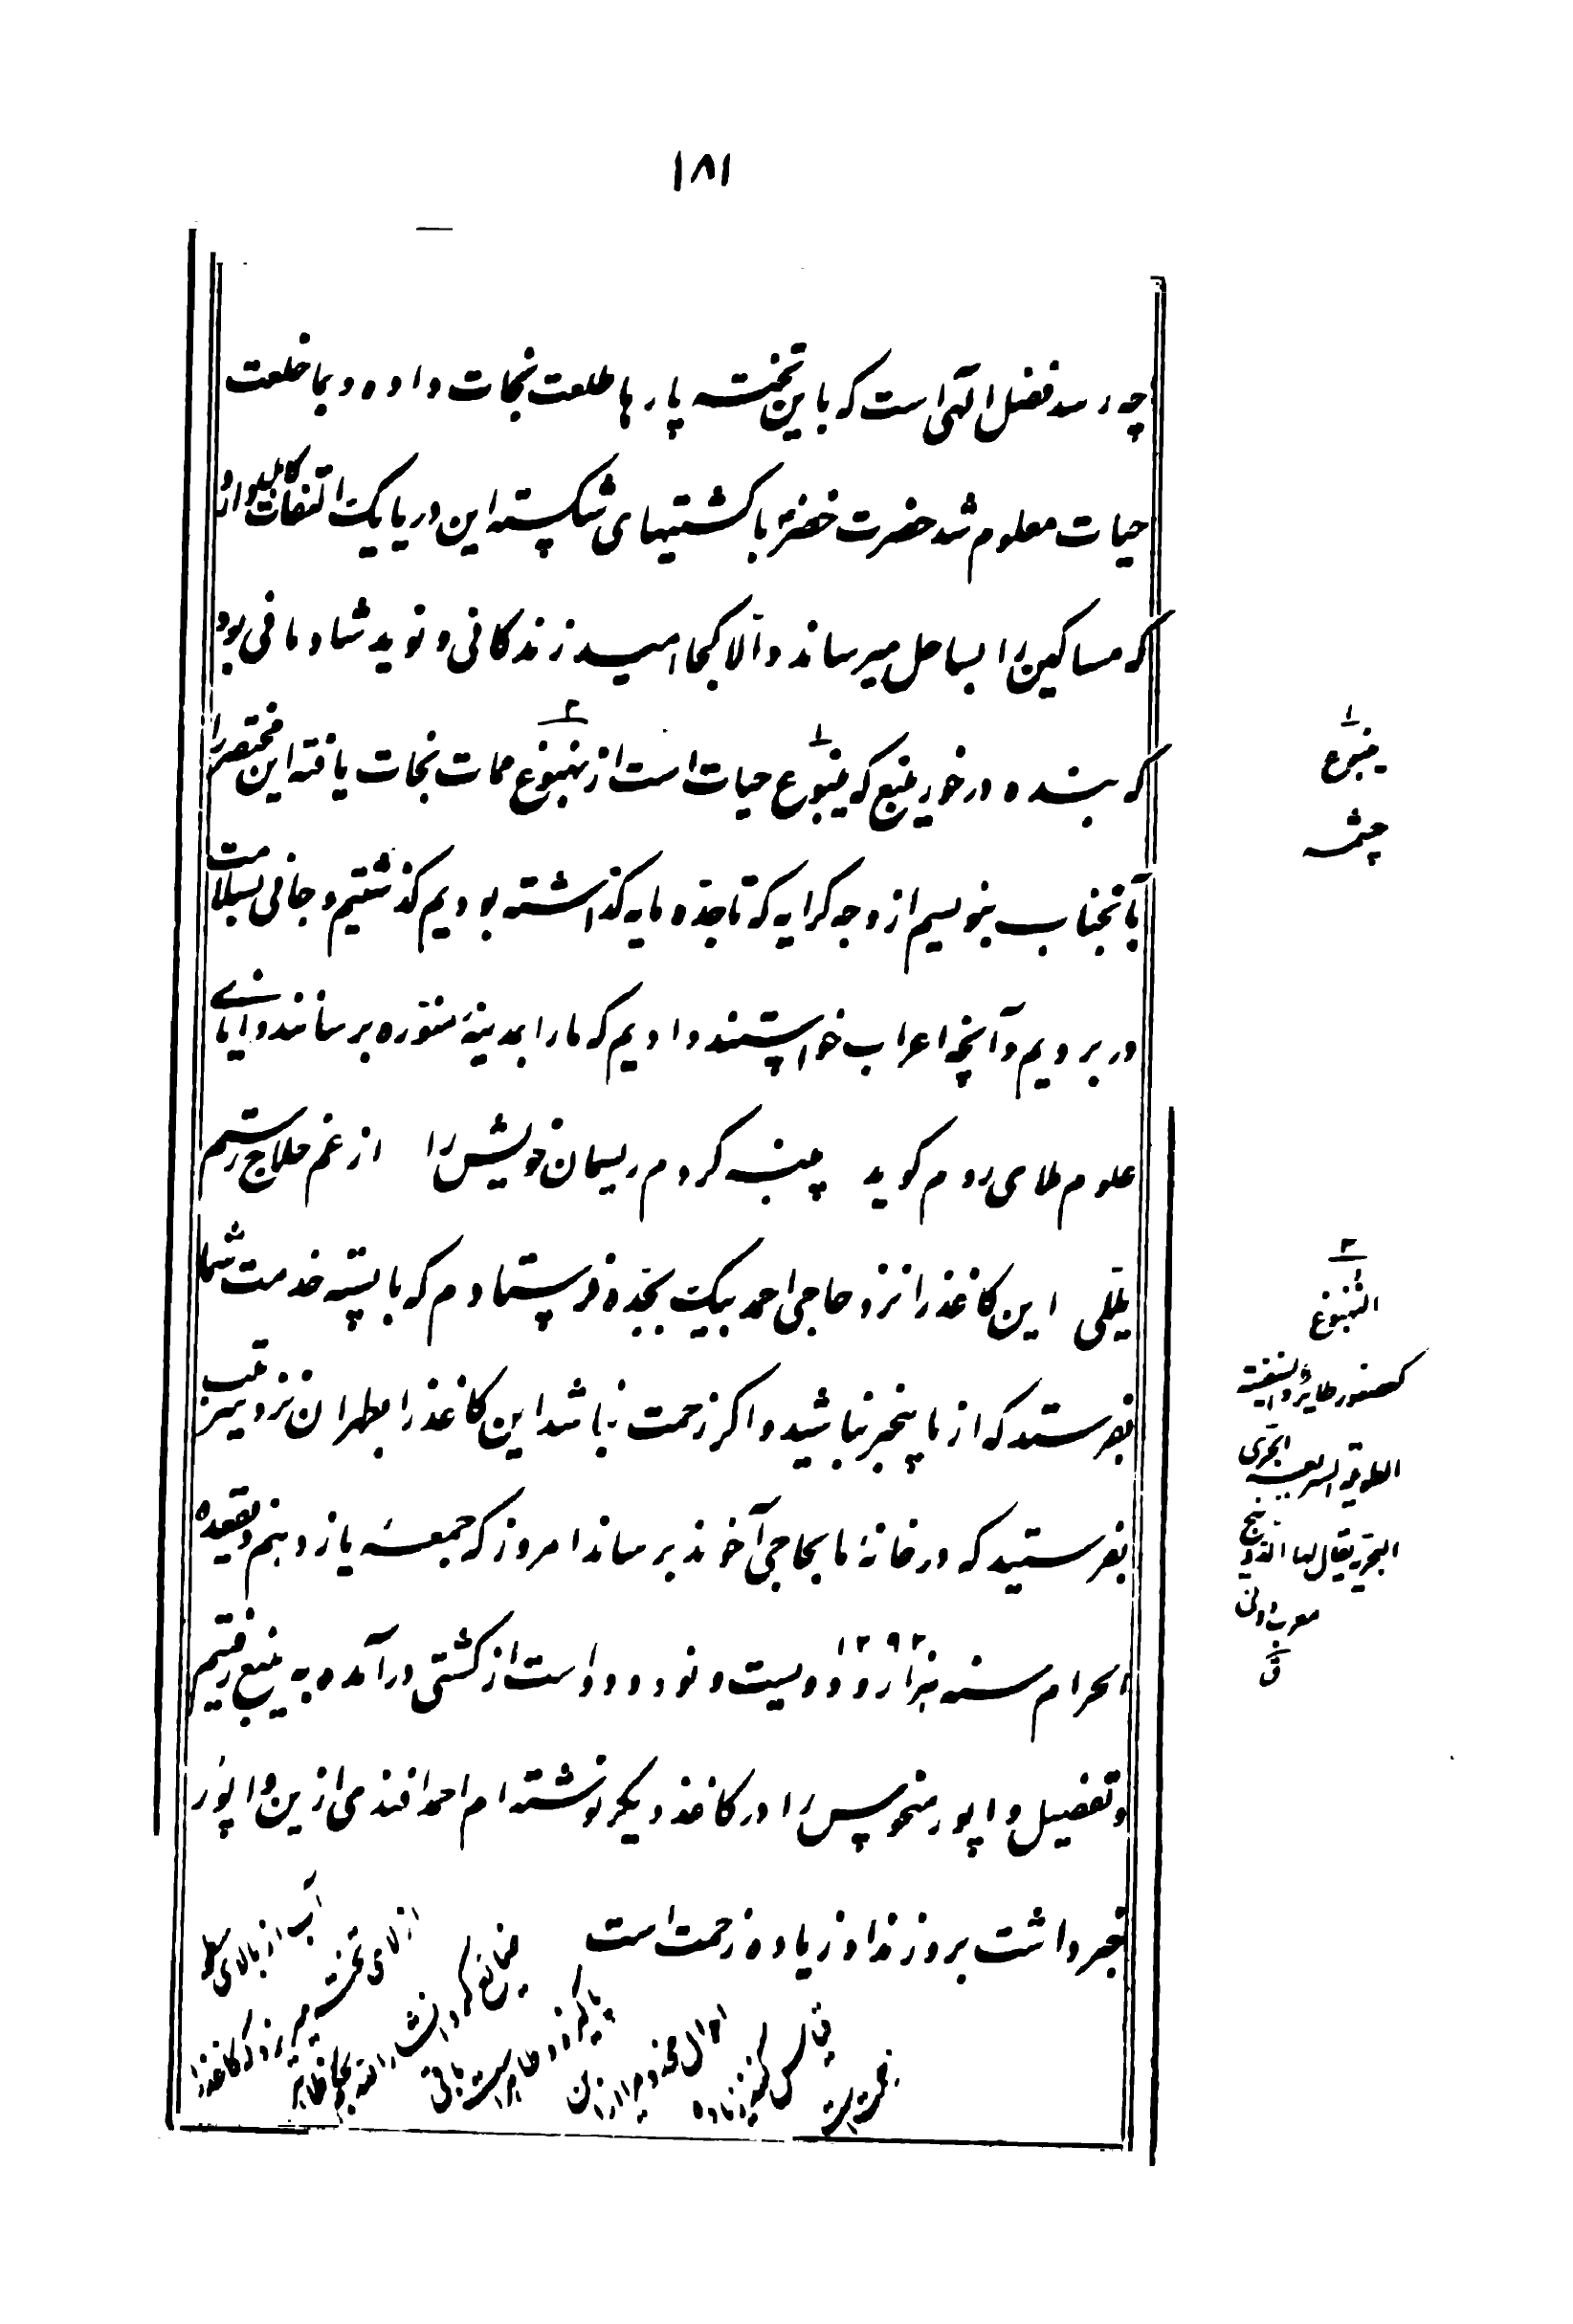 ۱۸۱
چه رسد فضل الهی است که باین تخته پارها طلعت نجات داده و بما خلعت
حیات معلوم شد حضرت خضر با کشتیهای شکسته این دریا یک التفات کاملی دارد
که مساکین را بساحل میرساند و الا کجا امید زندگانی و نوید شادمانی بود
که بنده در خود ینبع که ینبوع حیات است از نهبوغ ممات نجات یافته این مختصر را
بآنجناب بنویسم از وجه کرایه که تا جده مایه گذاشته بودیم گذشتیم و جانی بسلامت
در بردیم و آنچه اعراب خواستند دادیم که ما را بمدینهٔ منوره برسانند
علوم ملای روم گوید پنبه کردم ریسمان خویش را از غم حلاج رستم
یللی این کاغذ را نزد حاجی احمد بیک بجده فرستادم که با پسته خدمت شما
بفرستد که از ما بیخبر نباشید و اگر زحمت نباشد این کاغذ را بطهران نزد
بفرستید که در خانهٔ ما بحاجی آخوند برساند امروز که جمعه یازدهم ذیقعده
الحرام سنه هزار و دویست و نود و دو است از کشتی درآمده به ینبع رفتیم ۱۲۹۲
و تفصیل واپور منحوس را در کاغذ دیگر نوشته‌ام احمد افندی ازین واپور
خبر داشت بروز نداد زیاده زحمت است
۱
ینبوع
چشمه
۲
النهبوغ
کعصفور طائر والسفینة
الطویلة السریعة الجری
البحریة یقال لها الدونیج
معرب دونی
ق